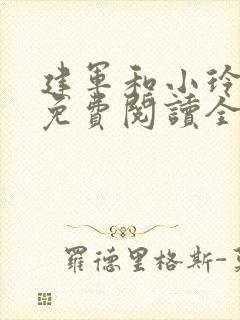 建軍和小玲
免費閱讀全
羅德里格斯-莫